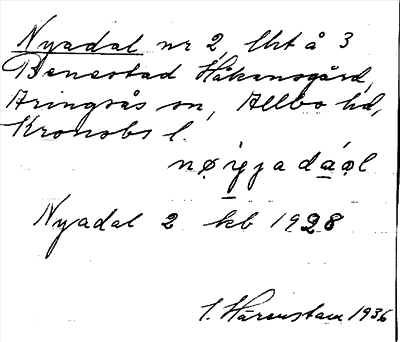 Nyadal nr 2, lht å 3
Benestad Håkansgård,
Aringsås sn, Allbo hd,
Kronobs l.
nø̣ỳjadáọl
Nyadal 2 kb 1928
I. Härenstam 1936